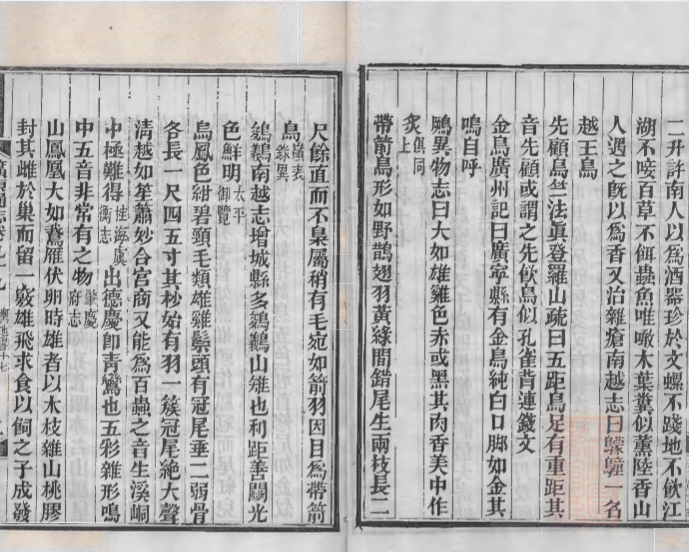 二升許南人以為酒器珍於文螺不踐地不飲江
湖不唼百草不餌蟲魚唯噉木葉糞似薰陸香山
人遇之旣以為香又治雜瘡南越志曰一名
越王鳥
先顧鳥竺法眞登羅山疏曰五距鳥足有重距其
音先顧或謂之先飲鳥似孔雀背連錢文
金鳥廣州記曰廣寧縣有金鳥純白口脚如金其
鳴自呼
鷃異物志曰大如雄雞色赤或黑其肉香美中作
炙俱同上
帶箭鳥形如野鵲翅羽黃綠間錯尾生兩枝長二
尺餘直而不裊屬稍有毛宛如箭羽因目為帶箭
鳥嶺表錄異
鷄鶄南越志增城縣多鷄鶄山雉也利距善鬬光
色鮮明太平御覽
烏鳳色紺碧頸毛類雄雞鬃頭有冠尾垂二弱骨
各長一尺四五寸其杪始有羽一簇冠尾絕大聲
清越如笙簫妙合宮商又能為百蟲之音生溪峒
中極難得桂海虞衡志出德慶卽青鸞也五彩雜形鳴
中五音非常有之物肇慶府志
山鳳凰大如鵞雁伏卵時雄者以木枝雜山桃膠
封其雌於巢而留一竅雄飛求食以飼之子成發
通志卷九十九